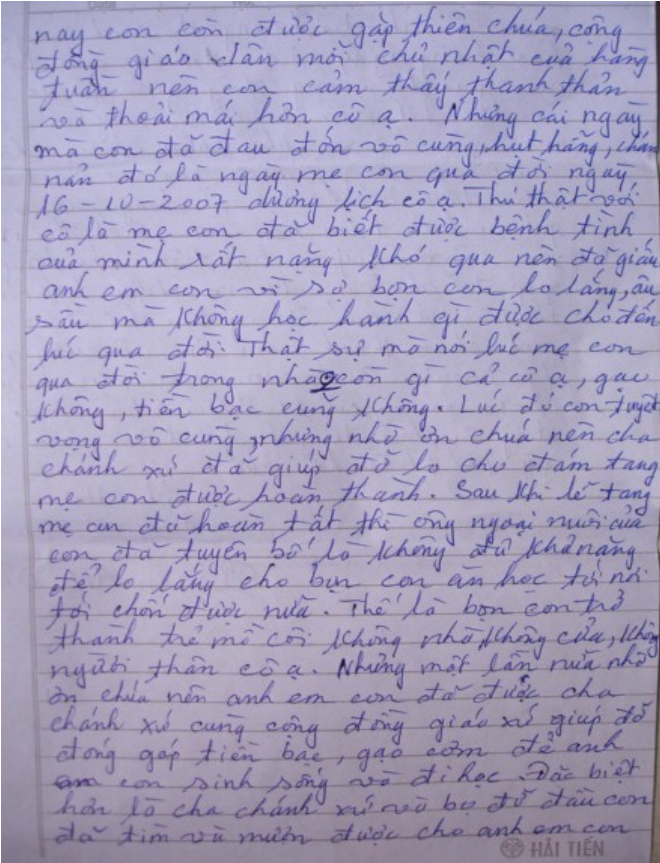 nay con còn được gặp thiên chúa, cộng
đồng giáo dân mỗi chủ nhật của hàng
tuần nên con cảm thấy thanh thản
và thoải mái hơn cô ạ. Nhưng cái ngày
mà con đã đau đớn vô cùng, hụt hẫng, chán
nản đó là ngày mẹ con qua đời ngày
16-10-2007 dương lịch cô ạ. Thú thật với
cô là mẹ con đã biết được bệnh tình
của mình rất nặng khó qua nên đã giấu
anh em con vì sợ bọn con lo lắng, âu
sầu mà không học hành gì được cho đến
lúc qua đời. Thật sự mà nói lúc mẹ con
qua đời trong nhà còn gì cả cô ạ, gạo
không, tiền bạc cũng không. Lúc đó con tuyệt
vọng vô cùng, nhưng nhờ ơn chúa nên cha
chánh xứ đã giúp đỡ lo cho đám tang
mẹ con được hoàn thành. Sau khi lễ tang
mẹ con đã hoàn tất thì ông ngoại nuôi của
con đã tuyên bố là không đủ khả năng
để lo lắng cho bọn con ăn học tới nơi
tới chốn được nữa. Thế là bọn con trở
thành trẻ mồ côi không nhà không cửa, không
người thân cô ạ. Nhưng một lần nữa nhờ
ơn chúa nên anh em con đã được cha
chánh xứ cùng cộng đồng giáo xứ giúp đỡ
đóng góp tiền bạc, gạo cơm để anh
em con sinh sống và đi học. Đặc biệt
hơn là cha chánh xứ và bọ đỡ đầu con
đã tìm và mướn được cho anh em con
HẢI TIẾN